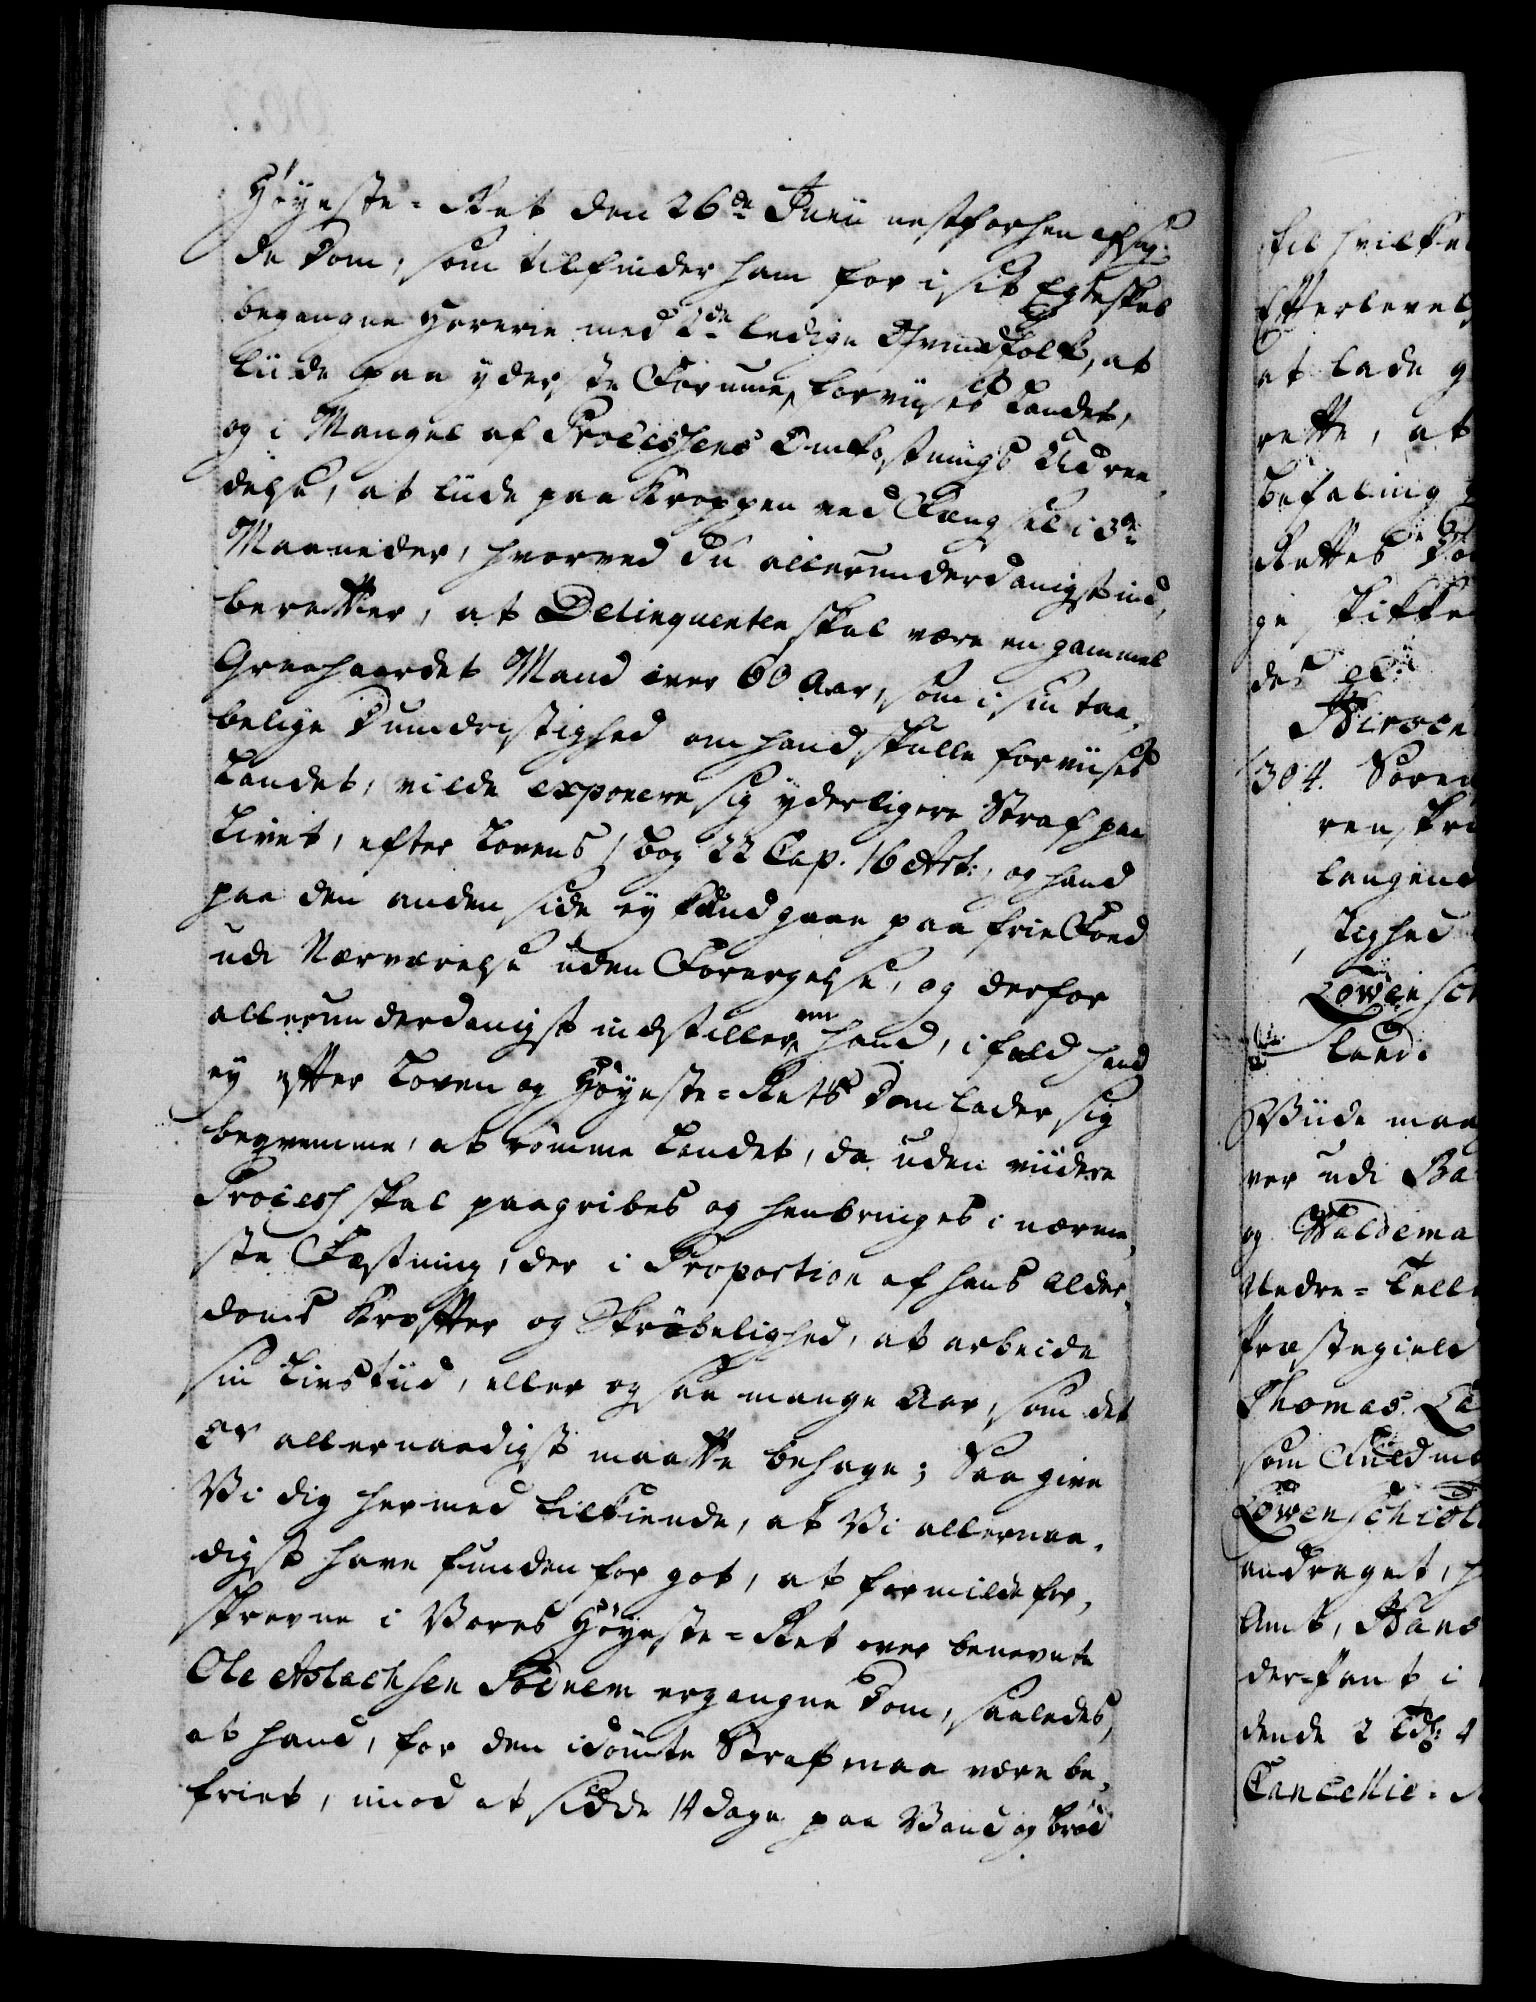 Høyeste-Ret den 26de Junii nestforhen afsag-
de Dom, som tilfinder ham for i sit Egteskab
begangne Horerie med 2de ledige Qvindfolk, at
liide paa yderste Formue, forviises Landet,
og i Mangel af Processens Omkostnings Udree-
delse, at liide paa Kroppen ved Fængsel i 3de
Maaneder, hvorved du allerunderdanigst ind-
beretter, at Delinquenten skal være en gammel
Graahaardet Mand over 60 Aar, som i sin taa-
belige Dumdristighed om hand skulle forviises
Landet, vilde exponere sig yderligere Straf paa
Livet, efter Lovens 1 bog 22 Cap. 16 Art:, og hand
paa den anden side ey kand gaae paa frie Foed
udi Nærværelse uden Forargelse, og derfor
allerunderdanigst indstiller, om hand, i fald hand
ey efter Loven og Høyeste-Rets Dom lader sig
beqvemme, at rømme Landet, da uden viidere
Process skal paagribes og henbringes i nærme-
ste Fæstning, der i Proportion af hans Alder-
doms Kræfter og Skrøbelighed, at arbeide
sin Livstiid, eller og saa mange Aar, som det
Os allernaadigst maatte behage; Saa give
Vi dig hermed tilkiende, at Vi allernaa-
digst have funden for got, at formilde for-
skrevne i Vores Høyeste-Ret over benevnte
Ole Aslachsen Fodnem ergangne Dom, saaledes,
at hand, for den idømte Straf maa være be-
friet, imod at sidde 14 dage paa Vand og brød
til hvilken
Efterlevels
at lade g
rette, at
befaling
Rettes Do
ge skikke
des etc
304. Soren
ren skri
langend
tighed
Løwensch
land.
Viide maa
ver udi Ba
og Waldema
Nedre-Tell
Præstegield
Thomas Lø
som
Løwenschiold
andraget, h
Amt, Hans
der-Fant i
dende 2
Cancellie-R